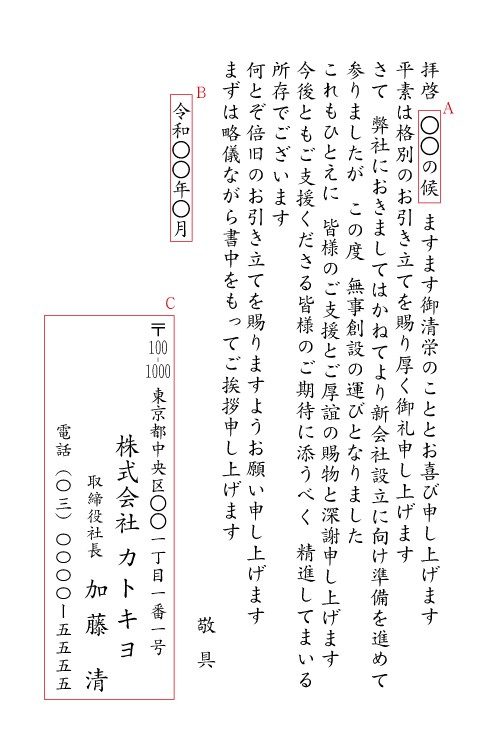 拝啓 〇〇の候 ますます御清栄のこととお喜び申し上げます
平素は格別のお引き立てを賜り厚く御礼申し上げます
さて 弊社におきましてはかねてより新会社設立に向け準備を進めて
参りましたが この度 無事創設の運びとなりました
これもひとえに 皆様のご支援とご厚誼の賜物と深謝申し上げます
今後ともご支援くださる皆様のご期待に添うべく 精進してまいる
所存でございます
何とぞ倍旧のお引き立てを賜りますようお願い申し上げます
まずは略儀ながら書中をもってご挨拶申し上げます
敬具
令和〇〇年〇月
〒100-1000 東京都中央区〇〇一丁目一番一号
株式会社 カトキヨ
取締役社長 加藤 清
電話(〇三)〇〇〇〇ー五五五五
A
B
C